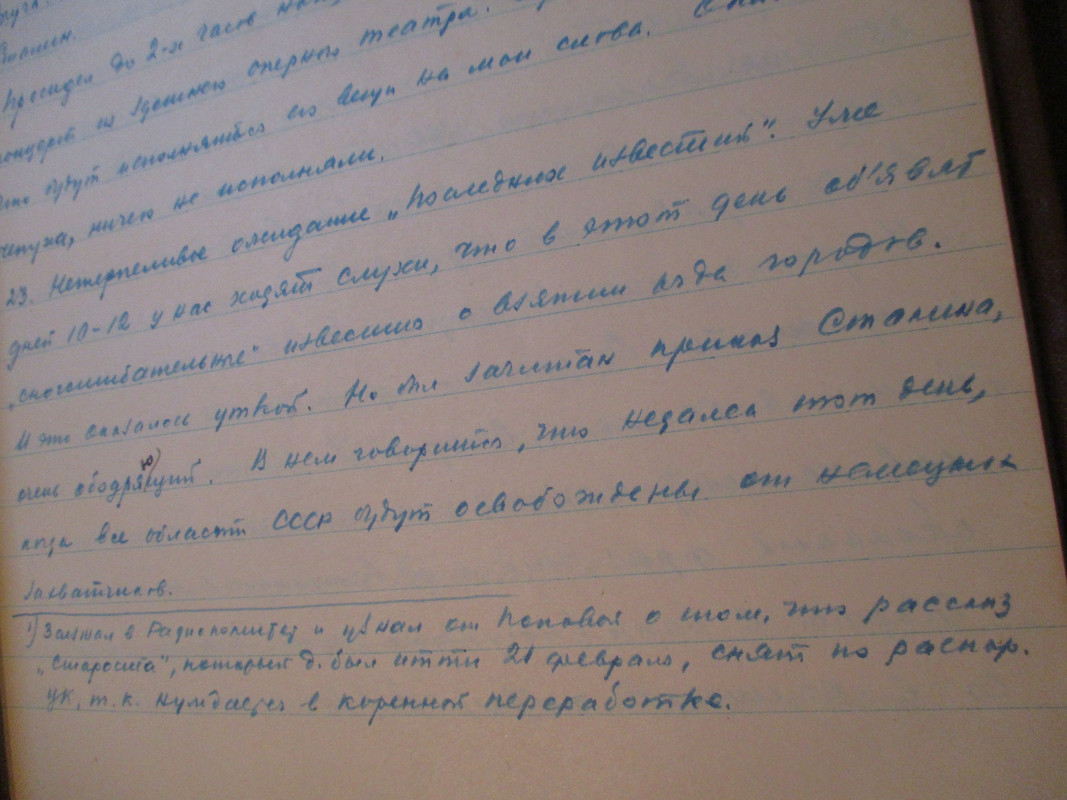 Просидел до 2-х часов
концерт из здешнего оперного театра.
будут исполняться его вещи на мои слова.
чепуха, ничего не исполняли.
23. Нетерпеливое ожидание „Последних известий". Уже
дней 10-12 у нас ходят слухи, что в этот день об'явят
„сногсшибательные" известия о взятии ряда городов.
И это оказалось уткой. Но был зачитан приказ Сталина,
очень ободряющий. В нем говорится, что недалек этот день,
когда все области СССР будут освобождены от немецких
захватчиков.
1) Заезжал в Радиокомитет и узнал от Поповой о том, что рассказ
„Староста", который д. был итти 21 февраля, снят по распор.
ЦК, т.к. нуждается в коренной переработке.